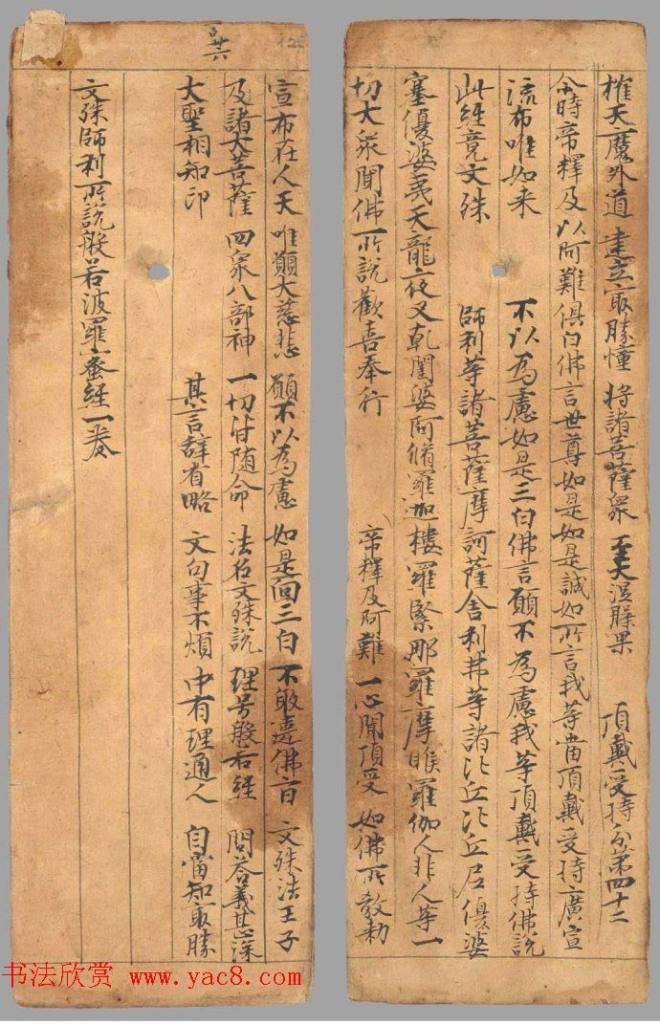 摧天魔外道 建立冣勝幢 将諸菩薩衆 至大涅 果 頂戴受持分第四十二
尒時帝釋及以阿難俱白佛言世尊如是如是誠如所言我等當頂戴受持廣宣
流布唯如来 不以為慮如是三白佛言願不為慮我等頂戴受持佛說
此経竟文殊 師利等諸菩薩摩訶薩舍利弗等諸比丘比丘尼優婆
塞優婆夷天龍夜叉乹闥婆阿脩羅迦樓羅緊那羅摩睺羅伽人非人等一
切大衆聞佛所說歡喜奉行 帝釋及阿難 一心聞頂受 如佛所教勅
宣布在人天 唯願大慈悲 願不以為慮 如是囬三白 不敢違佛言 文殊法王子
及諸大菩薩 四衆八部神 一切皆随命 法名文殊說 理号般若経 問荅義甚深
大聖相知印 其言辞省略 文句事不煩 中有理通人 自當知冣勝
文殊師利所說般若波羅蜜経一卷
书法欣赏 www.yac8.com